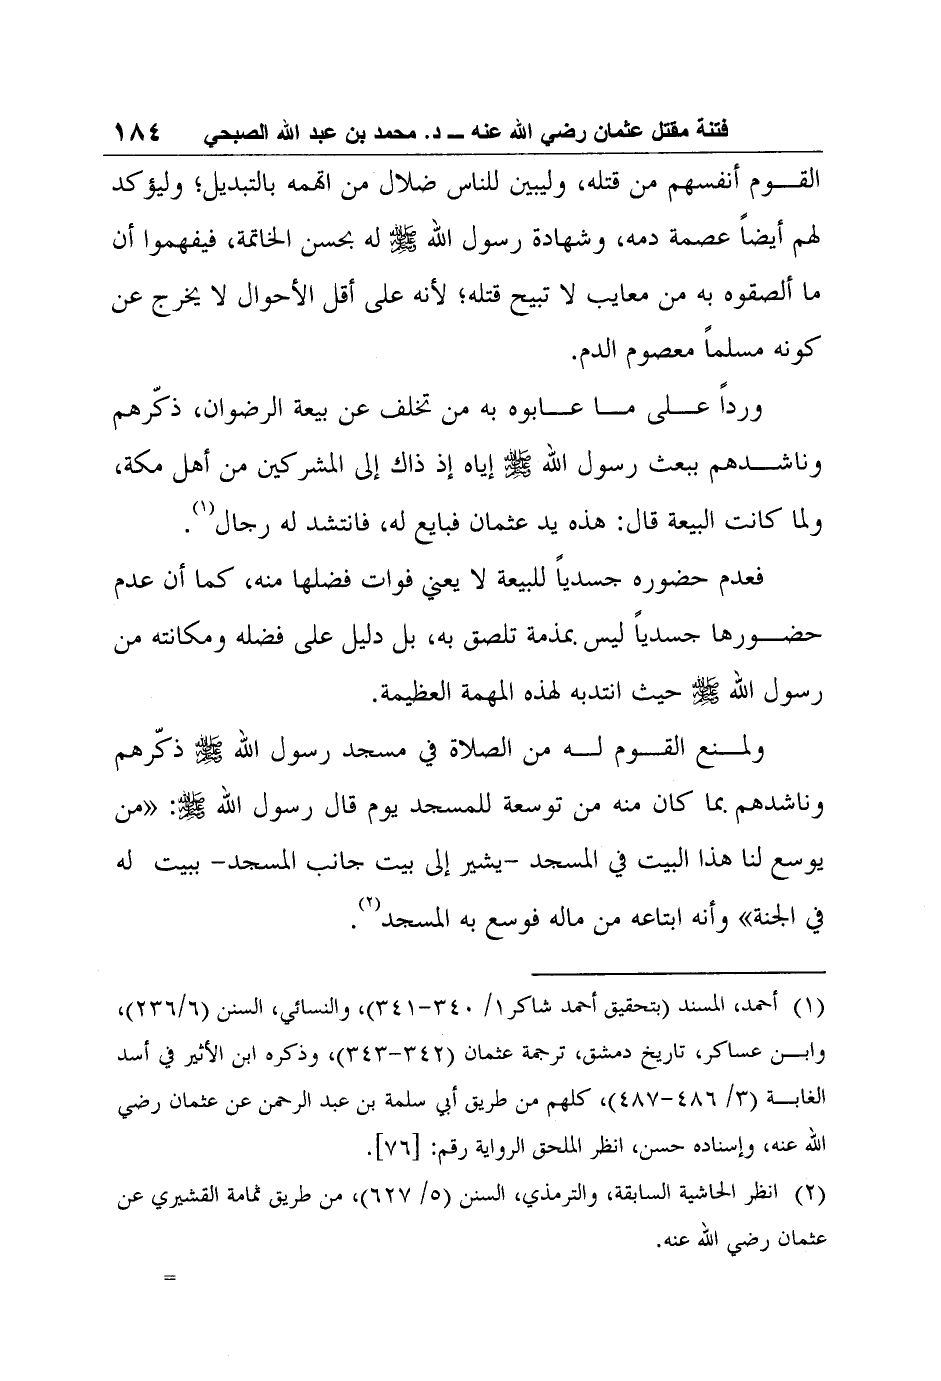 فتنة مقتل عثمان رضي الله عنه ــ د. محمد بن عبد الله الصبحي ١٨٤
القـــوم أنفسهم من قتله، وليبين للناس ضلال من اتهمه بالتبديل؛ وليؤكد
لهم أيضاً عصمة دمه، وشهادة رسول الله ﷺ له بحسن الخاتمة، فيفهموا أن
ما ألصقوه به من معايب لا تبيح قتله؛ لأنه على أقل الأحوال لا يخرج عن
كونه مسلماً معصوم الدم.
ورداً علــى مــا عــابوه به من تخلف عن بيعة الرضوان، ذكّرهم
وناشــدهم ببعث رسول الله ﷺ إياه إذ ذاك إلى المشركين من أهل مكة،
ولما كانت البيعة قال: هذه يد عثمان فبايع له، فانتشد له رجال(١).
فعدم حضوره جسدياً للبيعة لا يعني فوات فضلها منه، كما أن عدم
حضــورها جسدياً ليس بمذمة تلصق به، بل دليل على فضله ومكانته من
رسول الله ﷺ حيث انتدبه لهذه المهمة العظيمة.
ولمــنع القــوم لــه من الصلاة في مسجد رسول الله ﷺ ذكّرهم
وناشدهم بما كان منه من توسعة للمسجد يوم قال رسول الله ﷺ: «من
يوسع لنا هذا البيت في المسجد -يشير إلى بيت جانب المسجد- ببيت له
في الجنة» وأنه ابتاعه من ماله فوسع به المسجد(٢).
(١) أحمد، المسند (بتحقيق أحمد شاكر ١/ ٣٤٠-٣٤١)، والنسائي، السنن (٢٣٦/٦)،
وابــن عساكر، تاريخ دمشق، ترجمة عثمان (٣٤٢-٣٤٣)، وذكره ابن الأثير في أسد
الغابــة (٣/ ٤٨٦-٤٨٧)، كلهم من طريق أبي سلمة بن عبد الرحمن عن عثمان رضي
الله عنه، وإسناده حسن، انظر الملحق الرواية رقم: [٧٦].
(٢) انظر الحاشية السابقة، والترمذي، السنن (٥/ ٦٢٧)، من طريق ثمامة القشيري عن
عثمان رضي الله عنه.
=